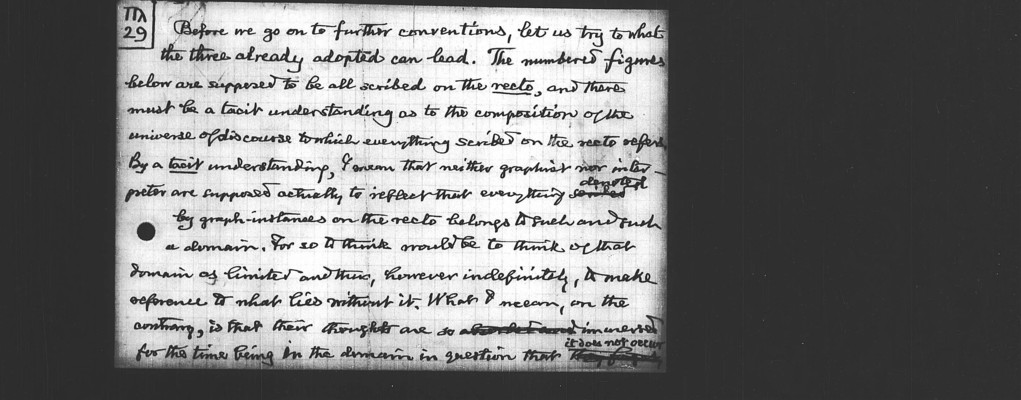 Mλ
29
Before we go on to further conventions, let us try to what
the three already adopted can lead. The numbered figures
below are supposed to be all scribed on the recto, and there
must be a tacit understanding as to the composition of the
universe of discourse to which everything scribed on the recto refers.
By a tacit understanding, I mean that neither graphist nor inter-
denoted
preter are supposed actually to reflect that everything scribed
by graph-instances on the recto belongs to such and such
a domain. For so to think would be to think of that
domain as limited and thus, however indefinitely, to make
reference to what lies without it. What I mean, on the
contrary, is that their thoughts are so absorbed and immersed
it does not occur
for the time being in the domain in question that